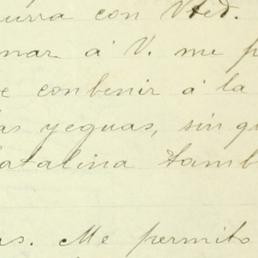 urra con Vted.
mar á V. me p
e conbenir á la
as yeguas, sin qu
atalina tamb
as. Me permito